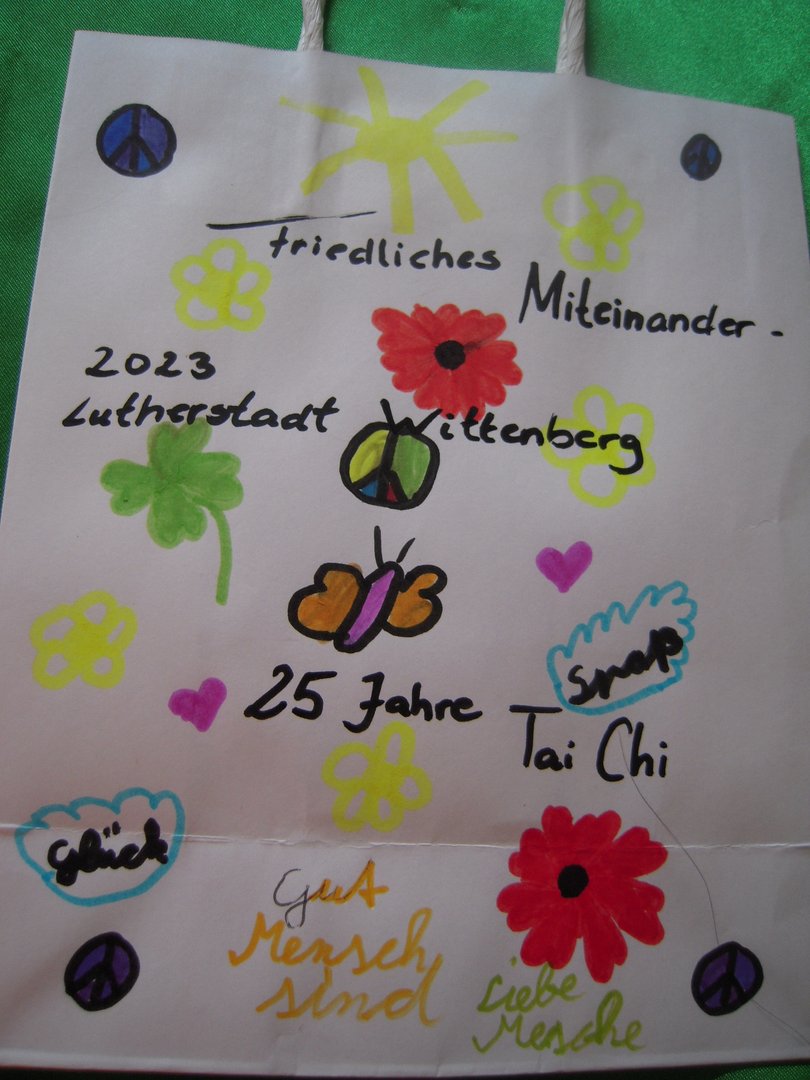 friedliches
Miteinander -
2023
Lutherstadt Wittenberg
Spaß
25 Jahre
Tai Chi
Glück
Gut
Mensch
sind
Liebe
Mensche